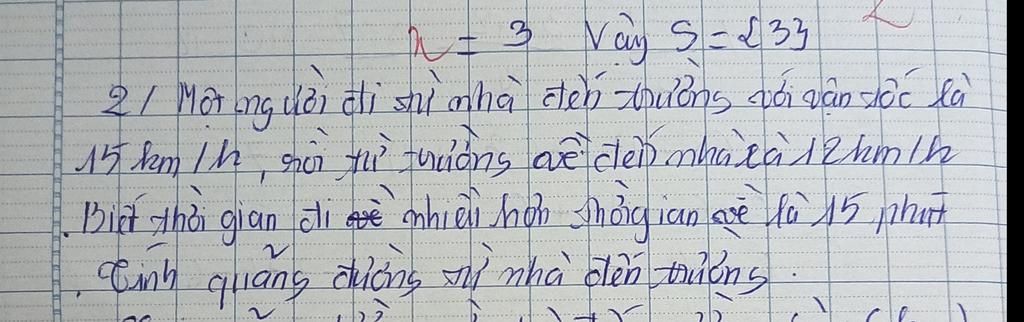 x = 3 Vậy S = {3}
2/ Một người đi từ nhà đến trường với vận tốc là
15 km/h, rồi từ trường về đến nhà là 12 km/h
Biết thời gian đi về nhiều hơn thời gian về là 15 phút
Tính quãng đường từ nhà đến trường.